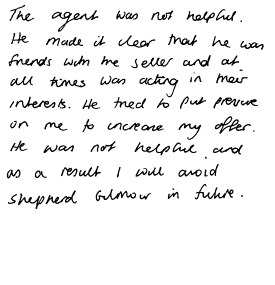 The agent was not helpful.
He made it clear that he was
friends with the seller and at
all times was acting in their
interests. He tried to put pressure
on me to increase my offer.
He was not helpful and
as a result I will avoid
Shepherd Gilmour in future.